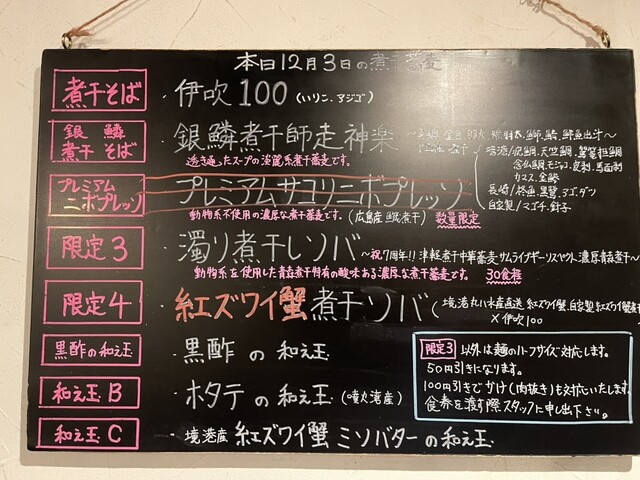 本日12月3日の煮干蕎麦
煮干そば ・伊吹100(いりこ、マジゴ)
銀鱗煮干そば ・銀鱗煮干師走神楽
透き通ったスープの淡麗系煮干蕎麦です。
カマス、金鯵
プレミアムニボプレッソ ・プレミアムサヨリニボプレッソ
自家製/マゴチ、針子
動物系不使用の濃厚な煮干蕎麦です。(広島産 煮干) 数量限定
限定3 ・濁り煮干しソバ ~祝7周年!!津軽煮干中華蕎麦サムライブギーリスペクト濃厚青森煮干~
動物系を使用した青森煮干特有の酸味ある濃厚な煮干蕎麦です。 30食程
限定4 ・紅ズワイ蟹煮干ソバ(境港丸い水産直送 紅ズワイ蟹、自家製 紅ズワイ蟹煮干
×伊吹100
黒酢の和え玉 ・黒酢の和え玉
和え玉B ・ホタテの和え玉(噴火湾産)
和え玉C ・境港産 紅ズワイ蟹ミソバターの和え玉
限定3 以外は麺のハーフサイズ対応します。
50円引きになります。
100円引きでかけ(肉抜き)も対応いたします。
食券を渡す際スタッフに申し出下さい。